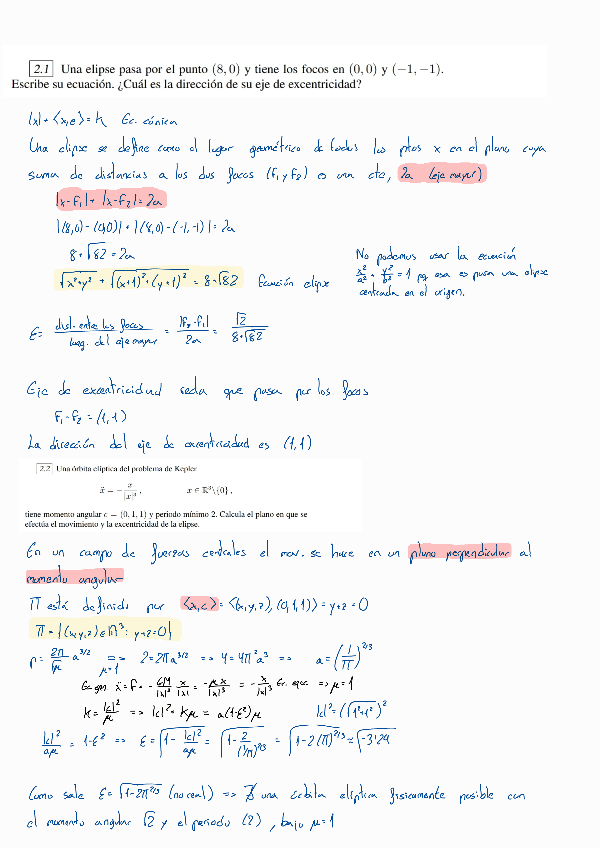 2.1 Una elipse pasa por el punto (8, 0) y tiene los focos en (0, 0) y (−1, −1).
Escribe su ecuación. ¿Cuál es la dirección de su eje de excentricidad?
|x| + <x,e> = k Ec. cónica
Una elipse se define como el lugar geométrico de todos los ptos x en el plano cuya
suma de distancias a los dos focos (F₁ y F₂) es una cte, 2a (eje mayor)
|x-F₁| + |x-F₂| = 2a
|(8,0) - (0,0)| + |(8,0) - (-1,-1)| = 2a
8 + √82 = 2a
√(x²+y²) + √((x+1)² + (y+1)²) = 8 + √82 Ecuación elipse
No podemos usar la ecuación
x²/a² + y²/b² = 1 pq esa es para una elipse
centrada en el origen.
ε = dist. entre los focos / long. del eje mayor = |F₂-F₁| / 2a = √2 / (8+√82)
Eje de excentricidad recta que pasa por los focos
F₁ - F₂ = (1,1)
La dirección del eje de excentricidad es (1,1)
2.2 Una órbita elíptica del problema de Kepler
ẍ = − x/|x|³ , x ∈ ℝ³\{0} ,
tiene momento angular c = (0, 1, 1) y periodo mínimo 2. Calcula el plano en que se
efectúa el movimiento y la excentricidad de la elipse.
En un campo de fuerzas centrales el mov. se hace en un plano perpendicular al
momento angular
Π está definido por <x,c> = <(x,y,z),(0,1,1)> = y+z = 0
Π = {(x,y,z) ∈ ℝ³ : y+z=0}
p = 2π/√μ a^(3/2) => μ=1 2 = 2π a^(3/2) => 4 = 4π² a³ => a = (1/π)^(2/3)
Ec gen. ẍ = F = - GM/|x|² x/|x| = - μx/|x|³ = - x/|x|³ Ec. espec. => μ=1
k = |c|²/μ => |c|² = kμ = a(1-ε²)μ |c|² = (√(1²+1²))²
|c|²/aμ = 1-ε² => ε = √(1 - |c|²/aμ) = √(1 - 2/(1/π)^(2/3)) = √(1-2(π)^(2/3)) = √-3'29
Como sale ε = √(1-2π^(2/3)) (no real) => ∄ una órbita elíptica físicamente posible con
el momento angular √2 y el periodo (2), bajo μ=1